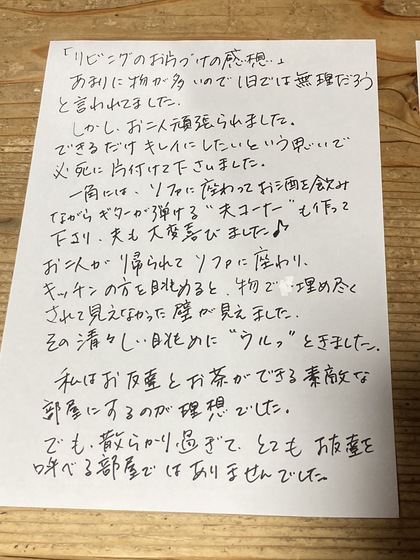 「リビングのお片づけの感想。」
あまりに物が多いので1日では無理だろう
と言われてました。
しかし、お二人頑張られました。
できるだけキレイにしたいという思いで
必死に片付けて下さいました。
一角には、ソファに座わってお酒を飲み
ながらギターが弾ける“夫コーナー”も作って
下さり、夫も大変喜びました♪
お二人が帰られてソファに座わり、
キッチンの方を眺めると、物で埋め尽く
されて見えなかった壁が見えました。
その清々しい眺めに“ウルっ”ときました。
私はお友達とお茶ができる素敵な
部屋にするのが理想でした。
でも、散らかり過ぎて、とてもお友達を
呼べる部屋ではありませんでした。